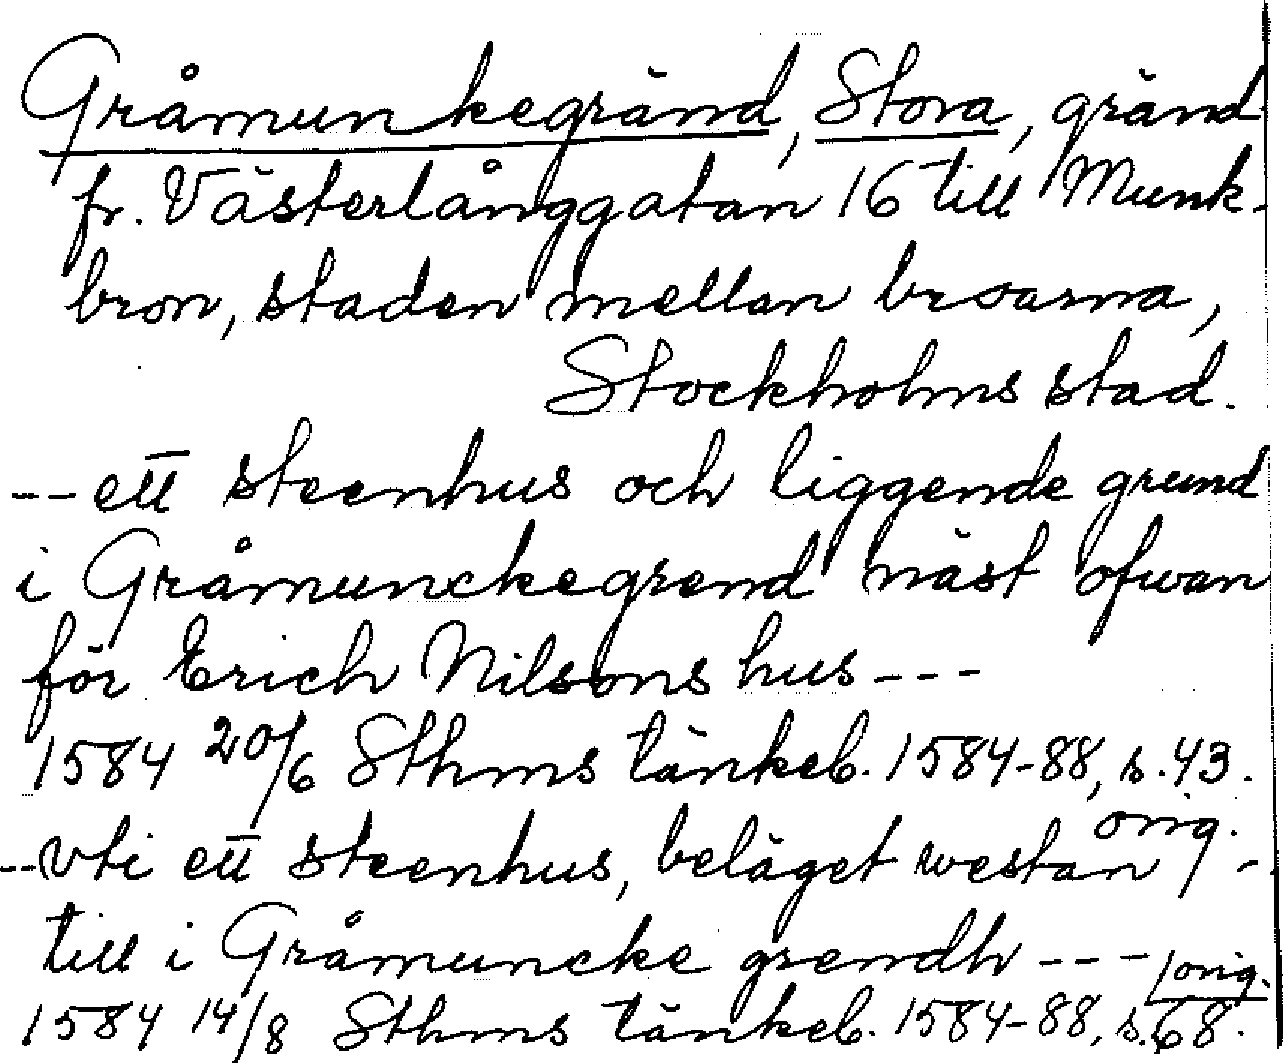 Gråmunkegränd, Stora, gränd
fr. Västerlånggatan 16 till Munk-
bron, staden mellan broarna,
Stockholms stad.
-- ett steenhus och liggende grund
i Gråmunckegrend näst ofwan
för Erich Nilsons hus ---
1584 20/6 Sthms tänkeb. 1584-88, s. 43.
orig.
-- vti ett steenhus, beläget westan --
till i Gråmuncke grendh ---
orig.
1584 14/8 Sthms tänkeb. 1584-88, s. 68.